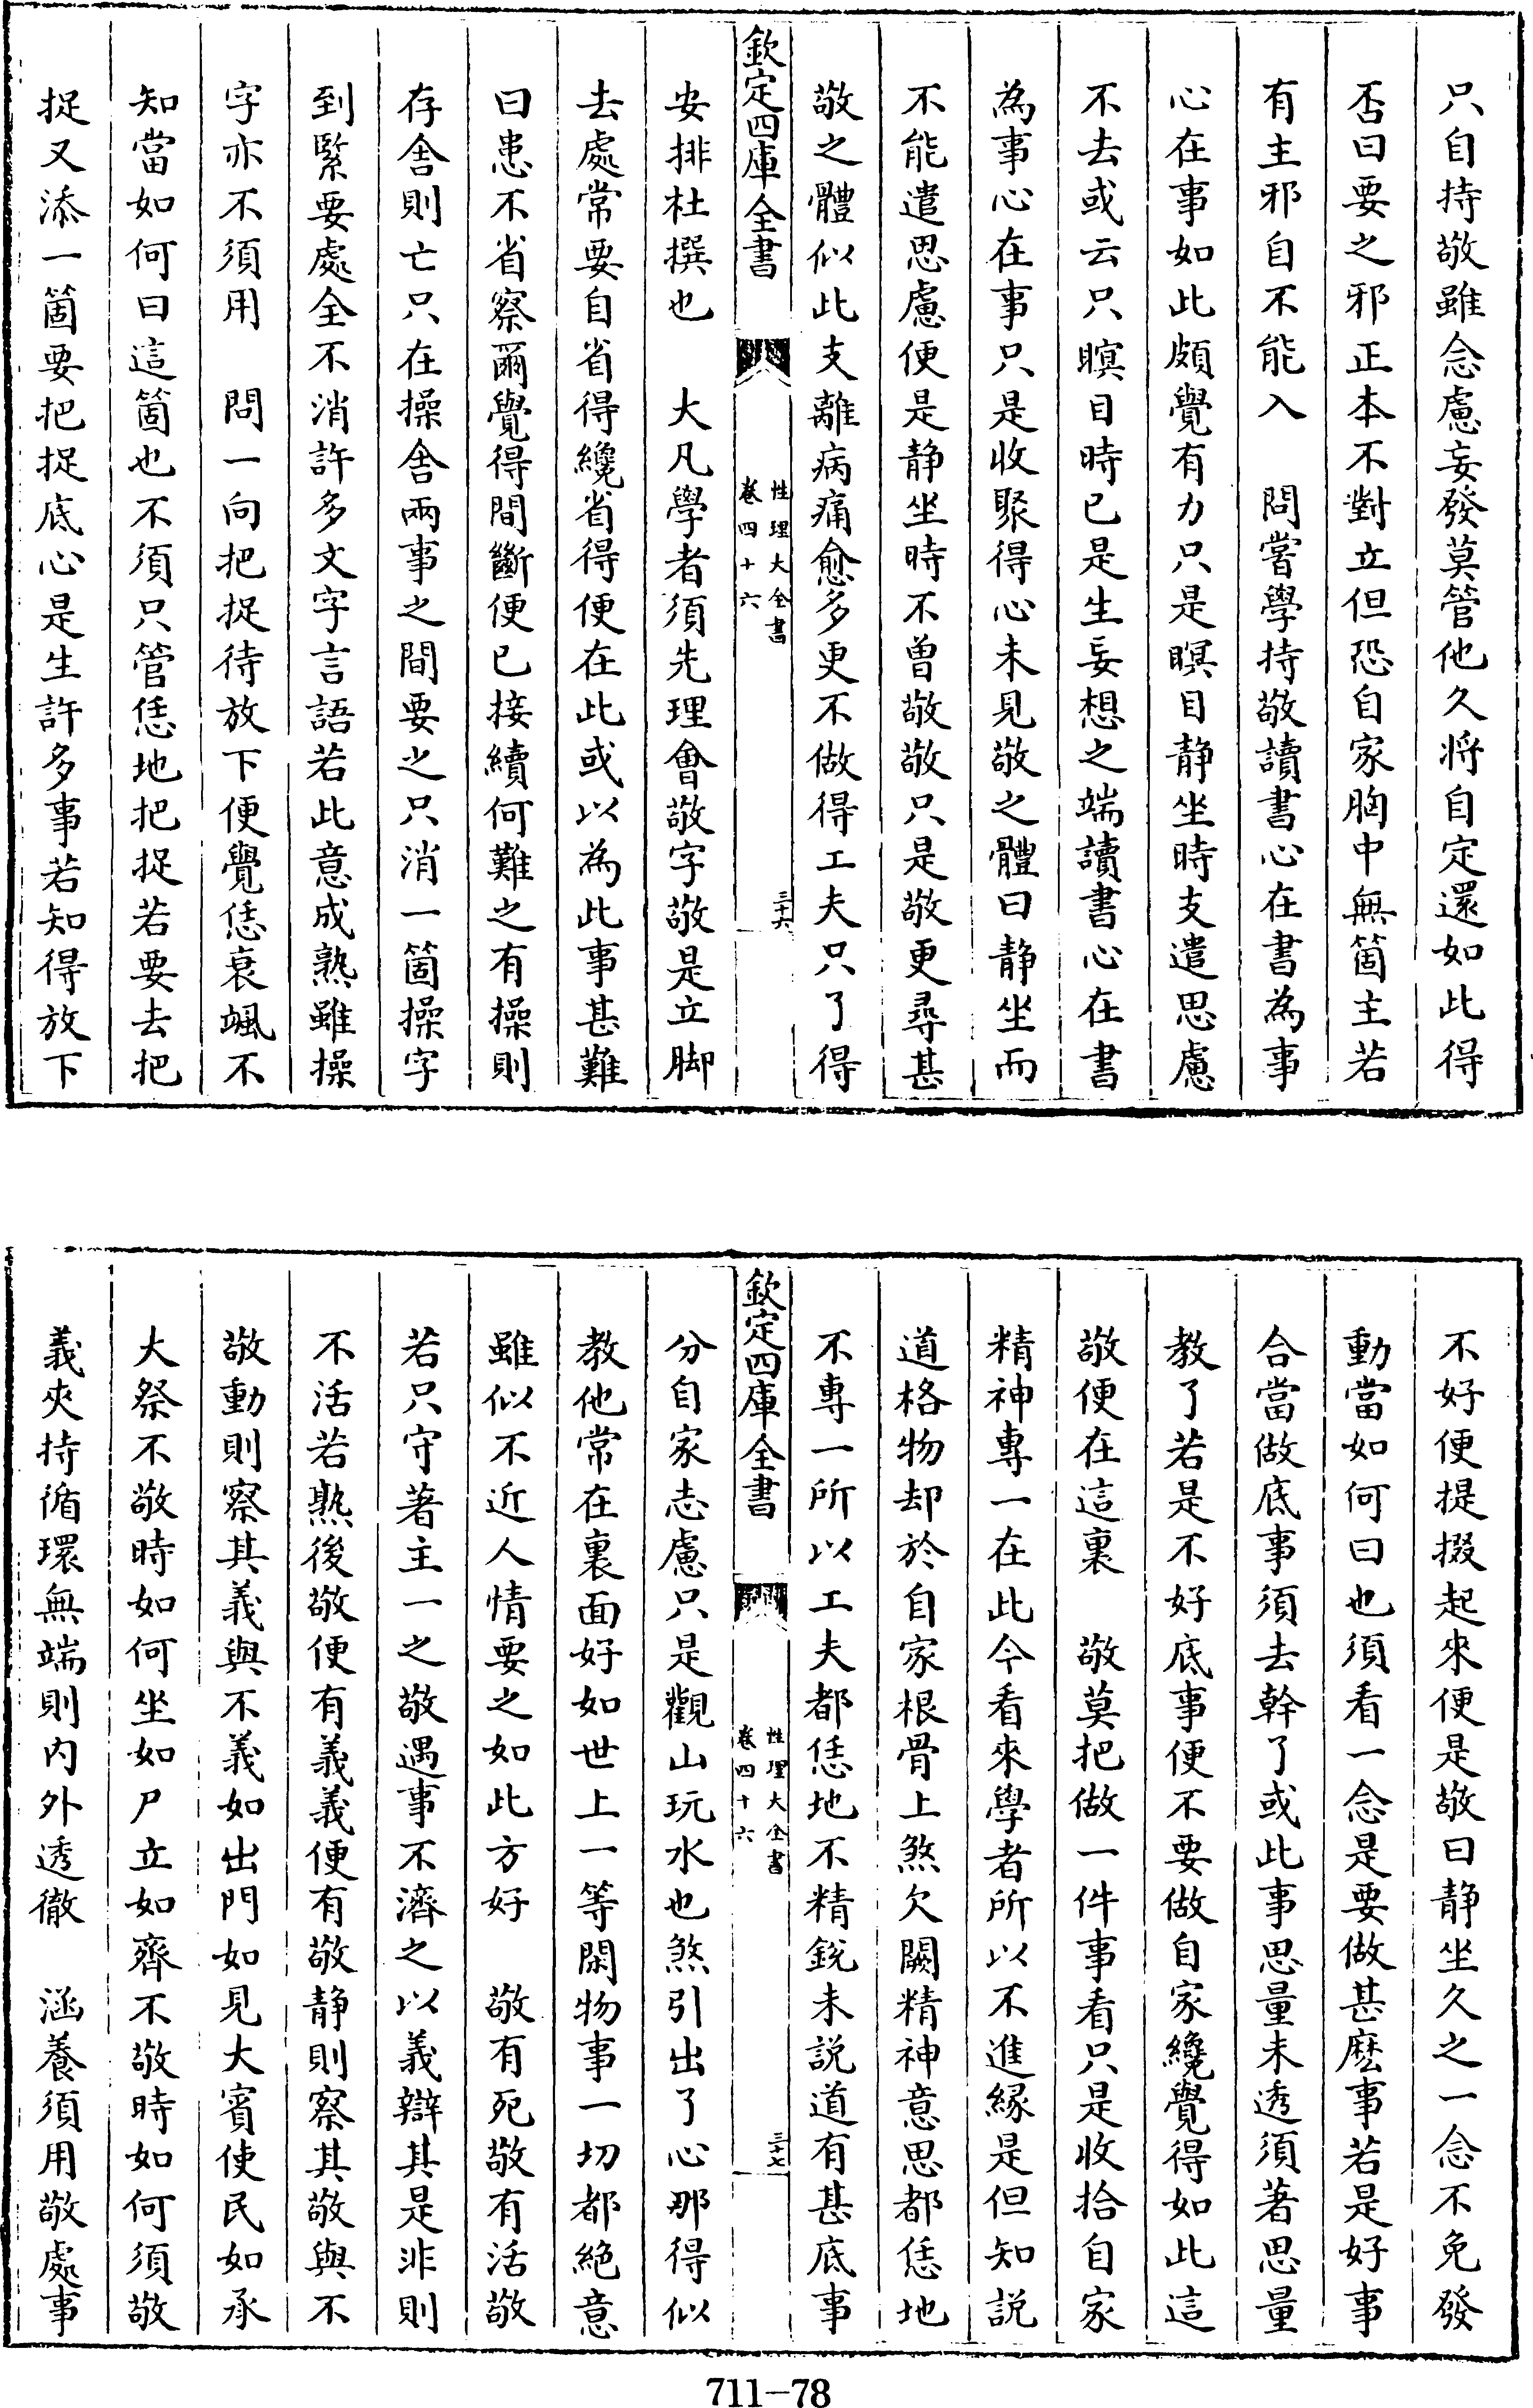 只自持敬雖念慮妄發莫管他久將自定還如此得
否曰要之邪正本不對立但恐自家胸中無箇主若
有主邪自不能入　問嘗學持敬讀書心在書為事
心在事如此頗覺有力只是瞑目静坐時支遣思慮
不去或云只瞑目時已是生妄想之端讀書心在書
為事心在事只是收聚得心未見敬之體曰静坐而
不能遣思慮便是静坐時不曾敬敬只是敬更尋甚
敬之體似此支離病痛愈多更不做得工夫只了得
欽定四庫全書
性理大全書
卷四十六
三十六
安排杜撰也　大凡學者須先理會敬字敬是立脚
去處常要自省得纔省得便在此或以為此事甚難
曰患不省察爾覺得間斷便已接續何難之有操則
存舍則亡只在操舍兩事之間要之只消一箇操字
到緊要處全不消許多文字言語若此意成熟雖操
字亦不須用　問一向把捉待放下便覺恁衰颯不
知當如何曰這箇也不須只管恁地把捉若要去把
捉又添一箇要把捉底心是生許多事若知得放下
不好便提掇起來便是敬曰静坐久之一念不免發
動當如何曰也須看一念是要做甚麽事若是好事
合當做底事須去幹了或此事思量未透須著思量
教了若是不好底事便不要做自家纔覺得如此這
敬便在這裏　敬莫把做一件事看只是收拾自家
精神專一在此今看來學者所以不進緣是但知説
道格物却於自家根骨上煞欠闕精神意思都恁地
不專一所以工夫都恁地不精鋭未説道有甚底事
欽定四庫全書
性理大全書
卷四十六
三十七
分自家志慮只是觀山玩水也煞引出了心那得似
教他常在裏面好如世上一等閑物事一切都絶意
雖似不近人情要之如此方好　敬有死敬有活敬
若只守著主一之敬遇事不濟之以義辯其是非則
不活若熟後敬便有義義便有敬静則察其敬與不
敬動則察其義與不義如出門如見大賓使民如承
大祭不敬時如何坐如尸立如齊不敬時如何須敬
義夾持循環無端則内外透徹　涵養須用敬處事
711-78